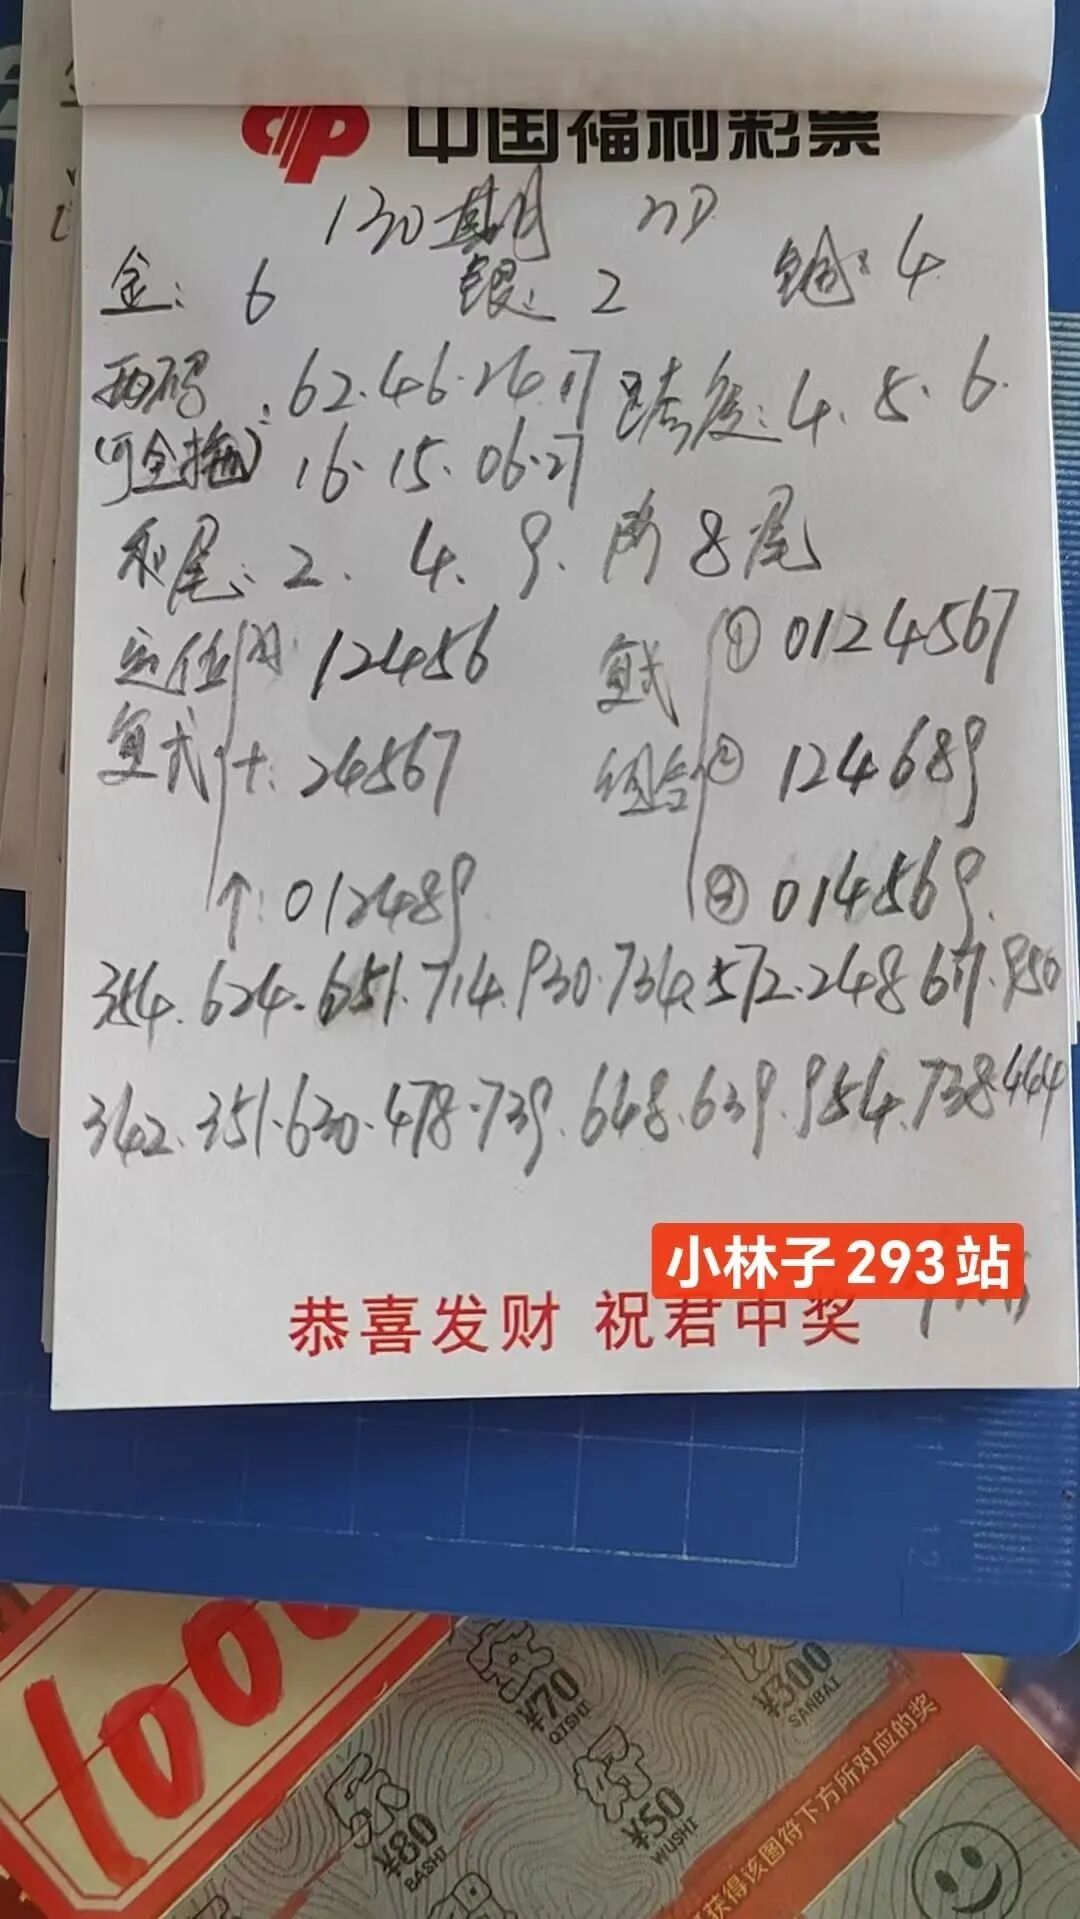 中国福利彩票
130期 3D
金: 6 银: 2 铜: 4
两码: 62.46.24.17 跨度: 4.5.6.
(可全拖) 16.15.06.27
和尾: 2.4.9.防8尾
定位 百: 12456 复式 ① 0124567
复式 十: 24567 组合 ② 124689
个: 012489 ③ 014569.
354.624.651.714.930.734.572.248 617.950
342.351.630.478.739.648.639.954.738.444
小林子293站
恭喜发财 祝君中奖
100
¥70
QISHI
¥300
SANBAI
乐
¥80
BASHI
¥50
WUSHI
获得该图符下方所对应的奖